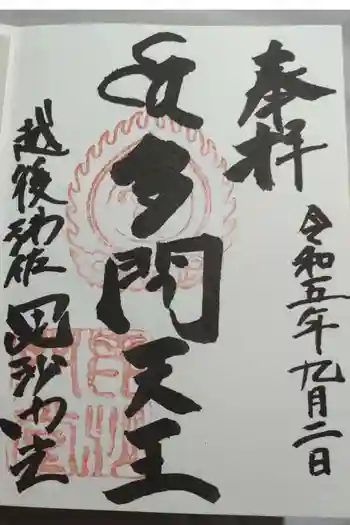 奉拝
令和五年九月二日
多門天王
越後
毘沙門堂